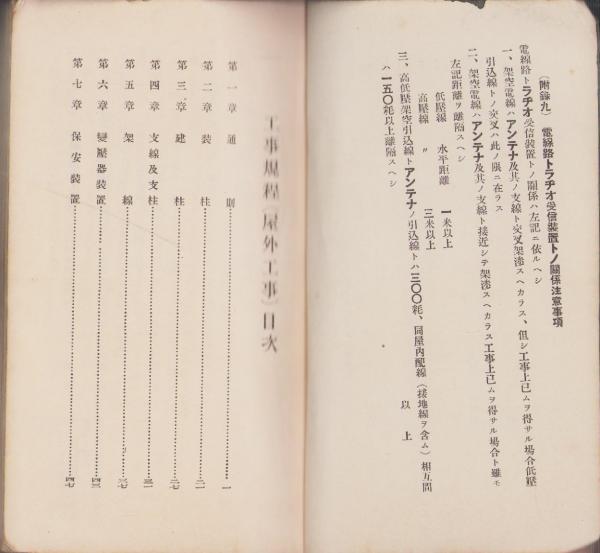 (附錄九) 電線路トラヂオ受信裝置トノ關係注意事項
電線路トラヂオ受信裝置トノ關係ハ左記ニ依ルヘシ
一、架空電線ハアンテナ及其ノ支線ト交叉架渉スヘカラス、但シ工事上已ムヲ得サル場合低壓
引込線トノ交叉ハ此ノ限ニ在ラス
二、架空電線ハアンテナ及其ノ支線ト接近シテ架渉スヘカラス工事上已ムヲ得サル場合ト雖モ
左記距離ヲ離隔スヘシ
低壓線 水平距離 一米以上
高壓線 〃 三米以上
三、高低壓架空引込線トアンテナノ引込線トハ三〇〇粍、同屋內配線(接地線ヲ含ム)相互間
ハ一五〇粍以上離隔スヘシ
以上
工事規程(屋外工事)目次
第一章 通則……一
第二章 裝柱……二一
第三章 建柱……二七
第四章 支線及支柱……三一
第五章 架線……三七
第六章 變壓器裝置……四三
第七章 保安裝置……四七